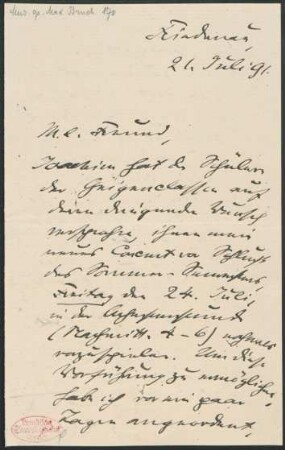 Friedenau,
21. Juli 91.
M. l. Freund,
Joachim hat den Schülern
der Geigenclassen auf
deren dringenden Wunsch
versprochen, ihnen mein
neues Concert vor Schluß
des Sommer-Semesters,
Freitag den 24. Juli,
in der
(Nachmitt. 4-6) nochmals
vorzuspielen. Um diese
Vorführung zu ermöglichen,
hab ich vor ein paar
Tagen angeordnet,